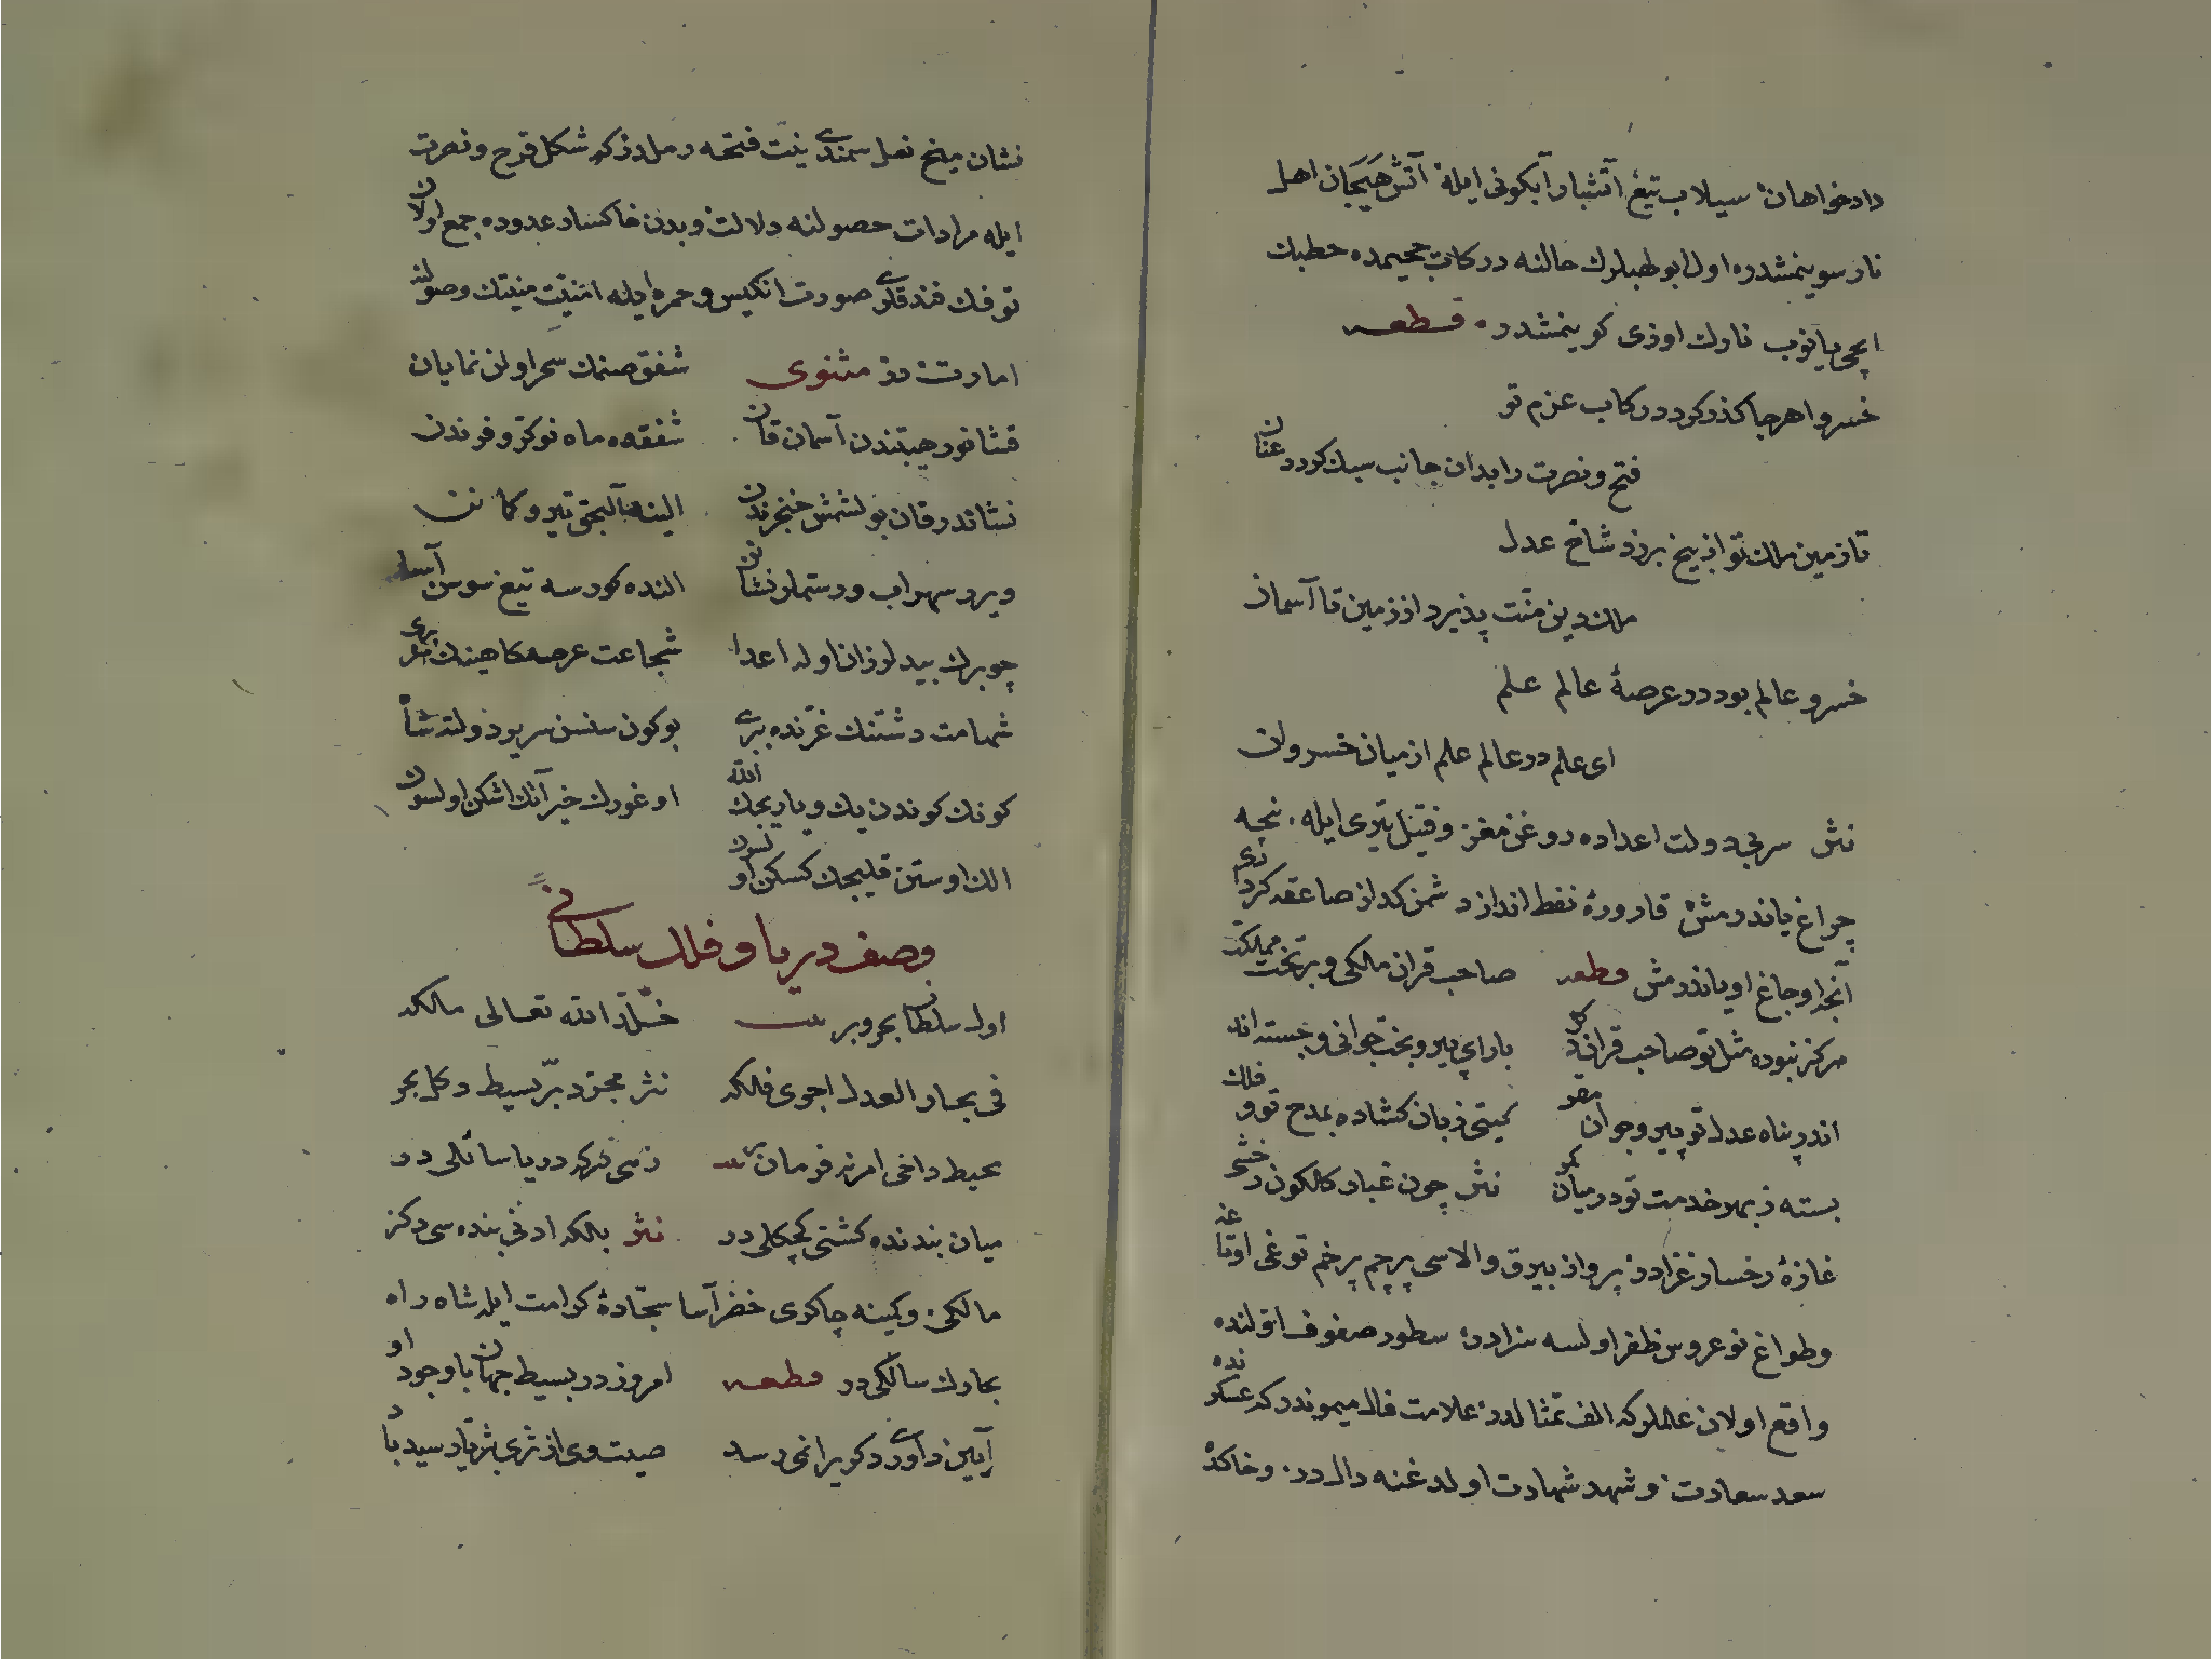 دادخواهان سیلاب تیغ آتشبار آبکونی ایله آتش هیجان اهل
نار سوینمشدر اول ابو لهبلرك حالنه درکات جحیمده حطبك
ایچی یانوب نارك اوزی کوینمشدر قطعه
خسروا هرجا کذر کرد در رکاب عزم تو
فتح و نصرت را بدان جانب سبك کردد عنان
تا زمین ملك تو از بیخ برزد شاخ عدل
ملك دین منت پذیرد از زمین تا آسمان
خسرو عالم بود در عرصهٔ عالم علم
ای علم در عالم علم از میان خسروان
نثر سر بی دولت اعداده روغن مغز و فتیل تیری ایله نیجه
چراغ یاندرمش قارورهٔ نفط انداز دشمن کداز صاعقه
اوجاغ اویاندرمش قطعه صاحب قران مالکی و بر تخت مملکت
هرکز نبوده مثل تو صاحب قران با رای پیر و بخت جوانی و
اندر پناه عدل تو پیر و جوان مقر کیتی زبان کشاده بمدح تو و فلك
بسته ز بهر خدمت تو در میان کمر نثر چون غبار کالکون رخشی
غازهٔ رخسار غزادر پرواز بیرق والاسی پرچم پرخم توغی اوتاغنه
وطواغ نو عروس ظفر اولسه سزادر سطور صفوف اقولنده
واقع اولان علملر که الف تمثالدر علامت فال میموندر که عسکرنده
سعد سعادت و شهد شهادت اولدغنه دالدر و خاکده
نشان میخ نعل سمندی ینت فتحه رملدر که شکل فرح و نصرت
ایله مرادات حصولنه دلالت و بدن خاکسار عدوده جمع اولان
توفك فندقلری صورت انکیس و حمره ایله امنیت منیتك وصولنه
امارت در مثنوی شفق صنمك سحر اولن نمایان
قشانور هیبتندن آسمان قان شفقده ماه نو کر و فرندن
نشاندر قان بولشمش خنجرندن الینه آلیجق تیر و کمانن
ویرر سهراب و رستملر نشانن النده کورسه تیغ سوسن آسا
چو برك بید لرزان اوله اعدا شجاعت عرصه کاهینك
شهامت دشتنك غرنده ببری بو کون سنسن سریر دولته شاه
کونك کوندن یك و یاریجك الله اوغورك خیر آنك اشکن اولسون
الك اوستن قلیجك کسکن اولسون
وصف دریا و فلك سلطانی
اول سلطان بحر و بر بیت خلد الله تعالی ملکه
فی بحار العدل اجری فلکه نثر مجرد بر بسیط دکل بحر
محیط داخی امرنه فرمان بیت زهی که دریا سائلی در
میان بندنده کشتی کچکلی در نثر بلکه ادنی بنده سی دکز
مالکی و کمینه چاکری خضر آسا سجادهٔ کرامت ایله شاه راه
بحارك سالکی در قطعه امروز در بسیط جهان با وجود او
آیین داوری دکریرا نمی رسد صیت وی از ثری بثریا رسید